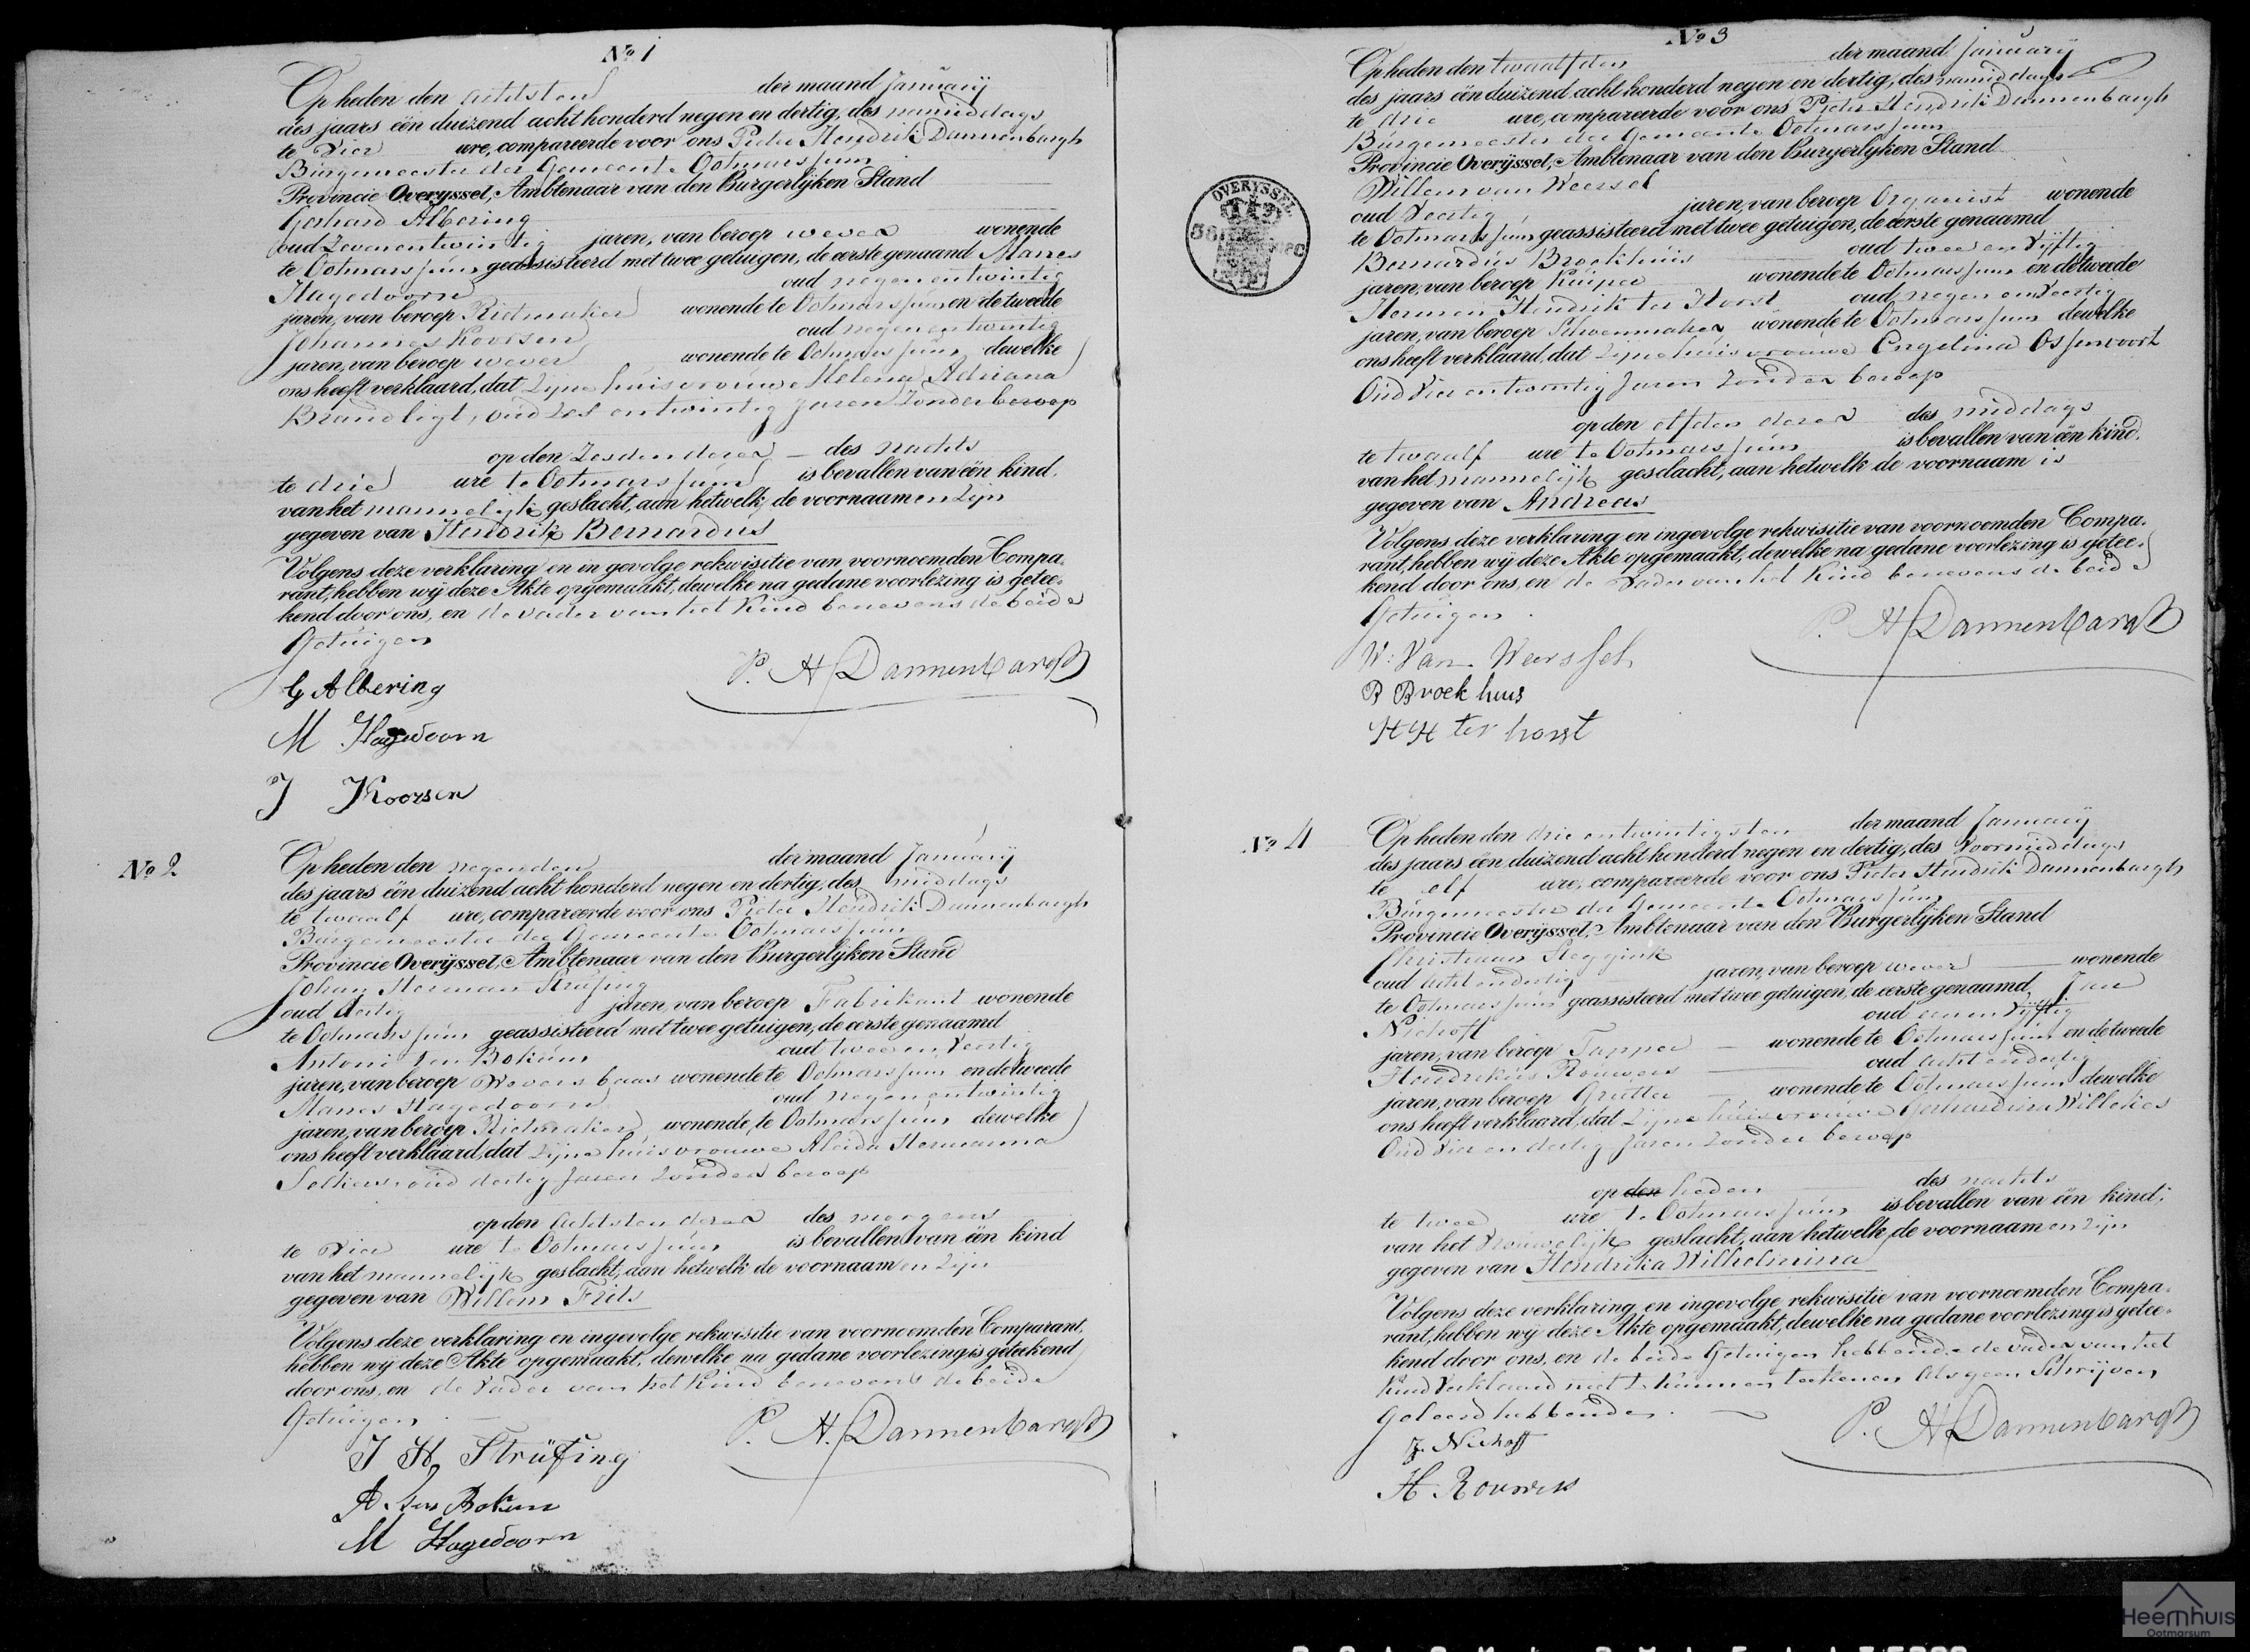 No 1
Op heden den achtsten der maand January
des jaars één duizend acht honderd negen en dertig, des namiddags
te vier ure, compareerde voor ons Pieter Hendrik Dannenbargh
Burgemeester der Gemeente Ootmarssum
Provincie Overijssel, Ambtenaar van den Burgerlijken Stand
Gerhard Albering
oud Zevenentwintig jaren, van beroep wever wonende
te Ootmarssum geassisteerd met twee getuigen, de eerste genaamd Mannes
Hagedoorn oud negenentwintig
jaren, van beroep Rietmaker wonende te Ootmarssum en de tweede
Johannes Koorsen oud negenentwintig
jaren, van beroep wever wonende te Ootmarssum dewelke
ons heeft verklaard, dat Zijne huisvrouwe Helena Adriana
Brandligt, oud Zes entwintig Jaren Zonder beroep
op den Zesden dezer des nachts
te drie ure te Ootmarssum is bevallen van één kind,
van het mannelijk geslacht, aan hetwelk de voornaamen Zijn
gegeven van Hendrik Bernardus
Volgens deze verklaring en in gevolge rekwisitie van voornoemden Compa-
rant, hebben wij deze Akte opgemaakt, dewelke na gedane voorlezing is getee-
kend door ons, en de vader van het Kind benevens de beide
Getuigen
P. H Dannenbargh
G Albering
M Hagedoorn
J Koorsen
No 2
Op heden den negenden der maand January
des jaars één duizend acht honderd negen en dertig, des middags
te twaalf ure, compareerde voor ons Pieter Hendrik Dannenbargh
Burgemeester der Gemeente Ootmarssum
Provincie Overijssel, Ambtenaar van den Burgerlijken Stand
Johan Herman Strüfing
oud dertig jaren, van beroep Fabrikant wonende
te Ootmarssum geassisteerd met twee getuigen, de eerste genaamd
Antoni ten Bokum oud twee en Veertig
jaren, van beroep Wevers baas wonende te Ootmarssum en de tweede
Mannes Hagedoorn oud negenentwintig
jaren, van beroep Rietmaker wonende te Ootmarssum dewelke
ons heeft verklaard, dat Zijne huisvrouwe Aleida Hermanna
oud dertig Jaren Zonder beroep
op den achtsten dezer des morgens
te vier ure te Ootmarssum is bevallen van één kind
van het mannelijk geslacht, aan hetwelk de voornaamen Zijn
gegeven van Willem Frits
Volgens deze verklaring en ingevolge rekwisitie van voornoemden Comparant,
hebben wij deze Akte opgemaakt, dewelke na gedane voorlezing is geteekend
door ons, en de Vader van het Kind benevens de beide
Getuigen
P. H. Dannenbargh
J H Strüfing
A. ten Bokum
M Hagedoorn
No 3
Op heden den twaalfden der maand January
des jaars één duizend acht honderd negen en dertig, des namiddags
te drie ure, compareerde voor ons Pieter Hendrik Dannenbargh
Burgemeester der Gemeente Ootmarssum
Provincie Overijssel, Ambtenaar van den Burgerlijken Stand
Willem van Weersel
oud Veertig jaren, van beroep Organist wonende
te Ootmarssum geassisteerd met twee getuigen, de eerste genaamd
Bernardus Broekhuis oud twee en Vijftig
jaren, van beroep Kuiper wonende te Ootmarssum en de tweede
Hermen Hendrik ter Horst oud negen en Veertig
jaren, van beroep Schoenmaker wonende te Ootmarssum dewelke
ons heeft verklaard, dat Zijne huisvrouwe Engelina Ossenvoort
Oud Vier entwintig Jaren Zonder beroep
op den elfden dezer des middags
te twaalf ure te Ootmarssum is bevallen van één kind,
van het mannelijk geslacht, aan hetwelk de voornaam is
gegeven van Andreas
Volgens deze verklaring en ingevolge rekwisitie van voornoemden Compa-
rant, hebben wij deze Akte opgemaakt, dewelke na gedane voorlezing is getee-
kend door ons, en de Vader van het Kind benevens de beide
Getuigen
P. H Dannenbargh
W. van Weerssel
B Broekhuis
H H ter horst
OVERYSSEL
No 4
Op heden den drie entwintigsten der maand January
des jaars één duizend acht honderd negen en dertig, des Voormiddags
te elf ure, compareerde voor ons Pieter Hendrik Dannenbargh
Burgemeester der Gemeente Ootmarssum
Provincie Overijssel, Ambtenaar van den Burgerlijken Stand
Christiaan
oud acht endertig jaren, van beroep wever wonende
te Ootmarssum geassisteerd met twee getuigen, de eerste genaamd Jan
Niehoff oud eenen Vijftig
jaren, van beroep Tapper wonende te Ootmarssum en de tweede
Hendrikus Rouwers oud acht endertig
jaren, van beroep Grutter wonende te Ootmarssum dewelke
ons heeft verklaard, dat Zijne huisvrouwe Gerhardina Willekes
Oud Vier en dertig Jaren Zonder beroep
op den heden des nachts
te twee ure te Ootmarssum is bevallen van één kind;
van het Vrouwelijk geslacht, aan hetwelk de voornaamen Zijn
gegeven van Hendrika Wilhelmina
Volgens deze verklaring en ingevolge rekwisitie van voornoemden Compa-
rant, hebben wij deze Akte opgemaakt, dewelke na gedane voorlezing is getee-
kend door ons, en de beide Getuigen hebbende de vader van het
Kind Verklaard niet te kunnen teekenen als geen Schrijven
Geleerd hebbende
P. H Dannenbargh
J. Niehoff
H Rouwers
Heemhuis
Ootmarsum